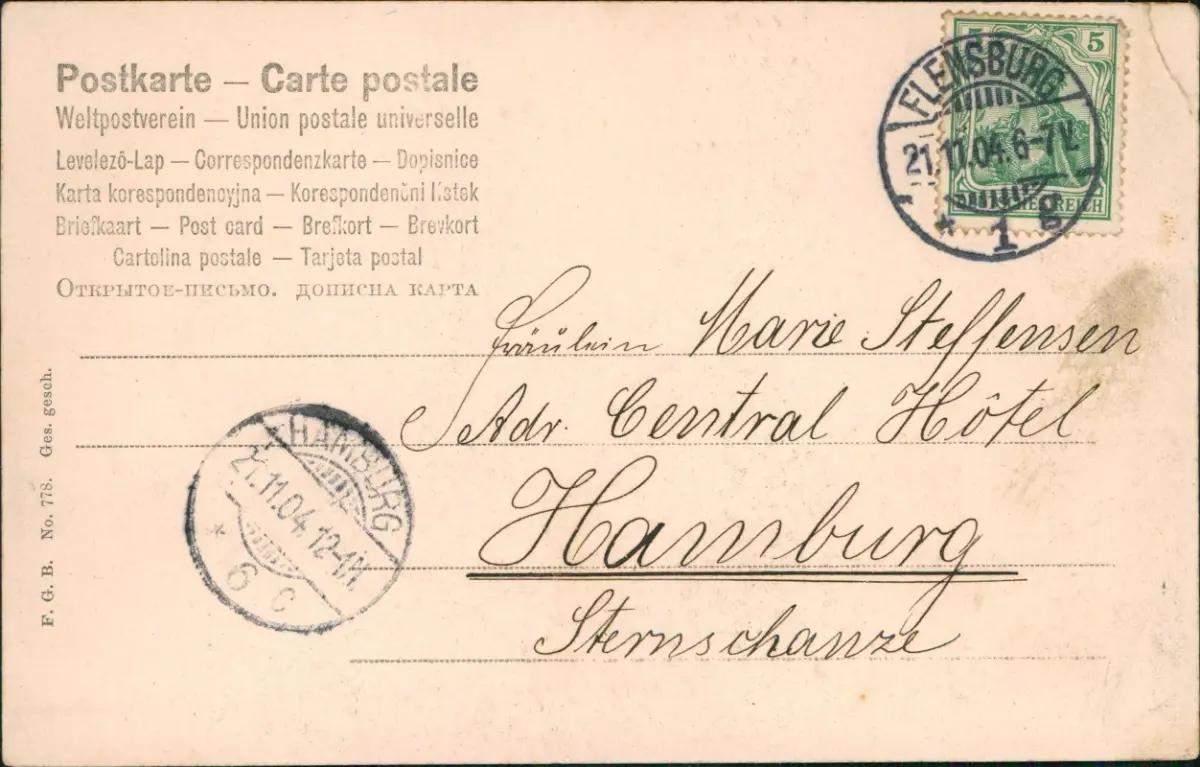 Postkarte — Carte postale
Weltpostverein — Union postale universelle
Levelező-Lap — Correspondenzkarte — Dopisnice
Karta korespondencyjna — Korespondenčni listek
Briefkaart — Post card — Brefkort — Brevkort
Cartolina postale — Tarjeta postal
Открытое-письмо. дописна карта
5 5
DEUTSCHES REICH
FLENSBURG
21.11.04. 6-7V.
* 1 g
Fräulein Marie Steffensen
Adr. Central Hôtel
Hamburg
Sternschanze
HAMBURG
21.11.04. 12-1N.
* 6 c
F. G. B. No. 778. Ges. gesch.